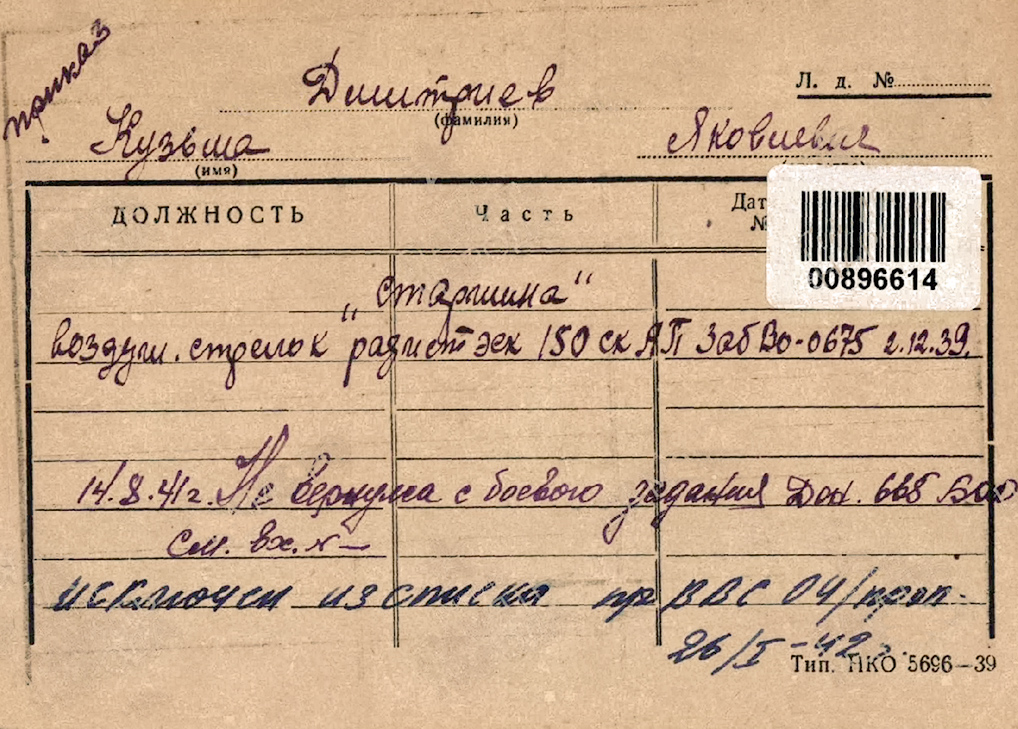 приказ
Дмитриев
Л. д. №
(фамилия)
Кузьма
Яковлевич
(имя)
ДОЛЖНОСТЬ
Часть
Дат
№
00896614
„старшина“
воздуш. стрелок радист эск 150 ск АП ЗабВо-0675 2.12.39.
14.8.41г. Не вернулся с боевого задания Дон.
см. вх. №—
исключен из списки пр ВВС 04/проп.
26/I-42г.
Тип. НКО 5696—39